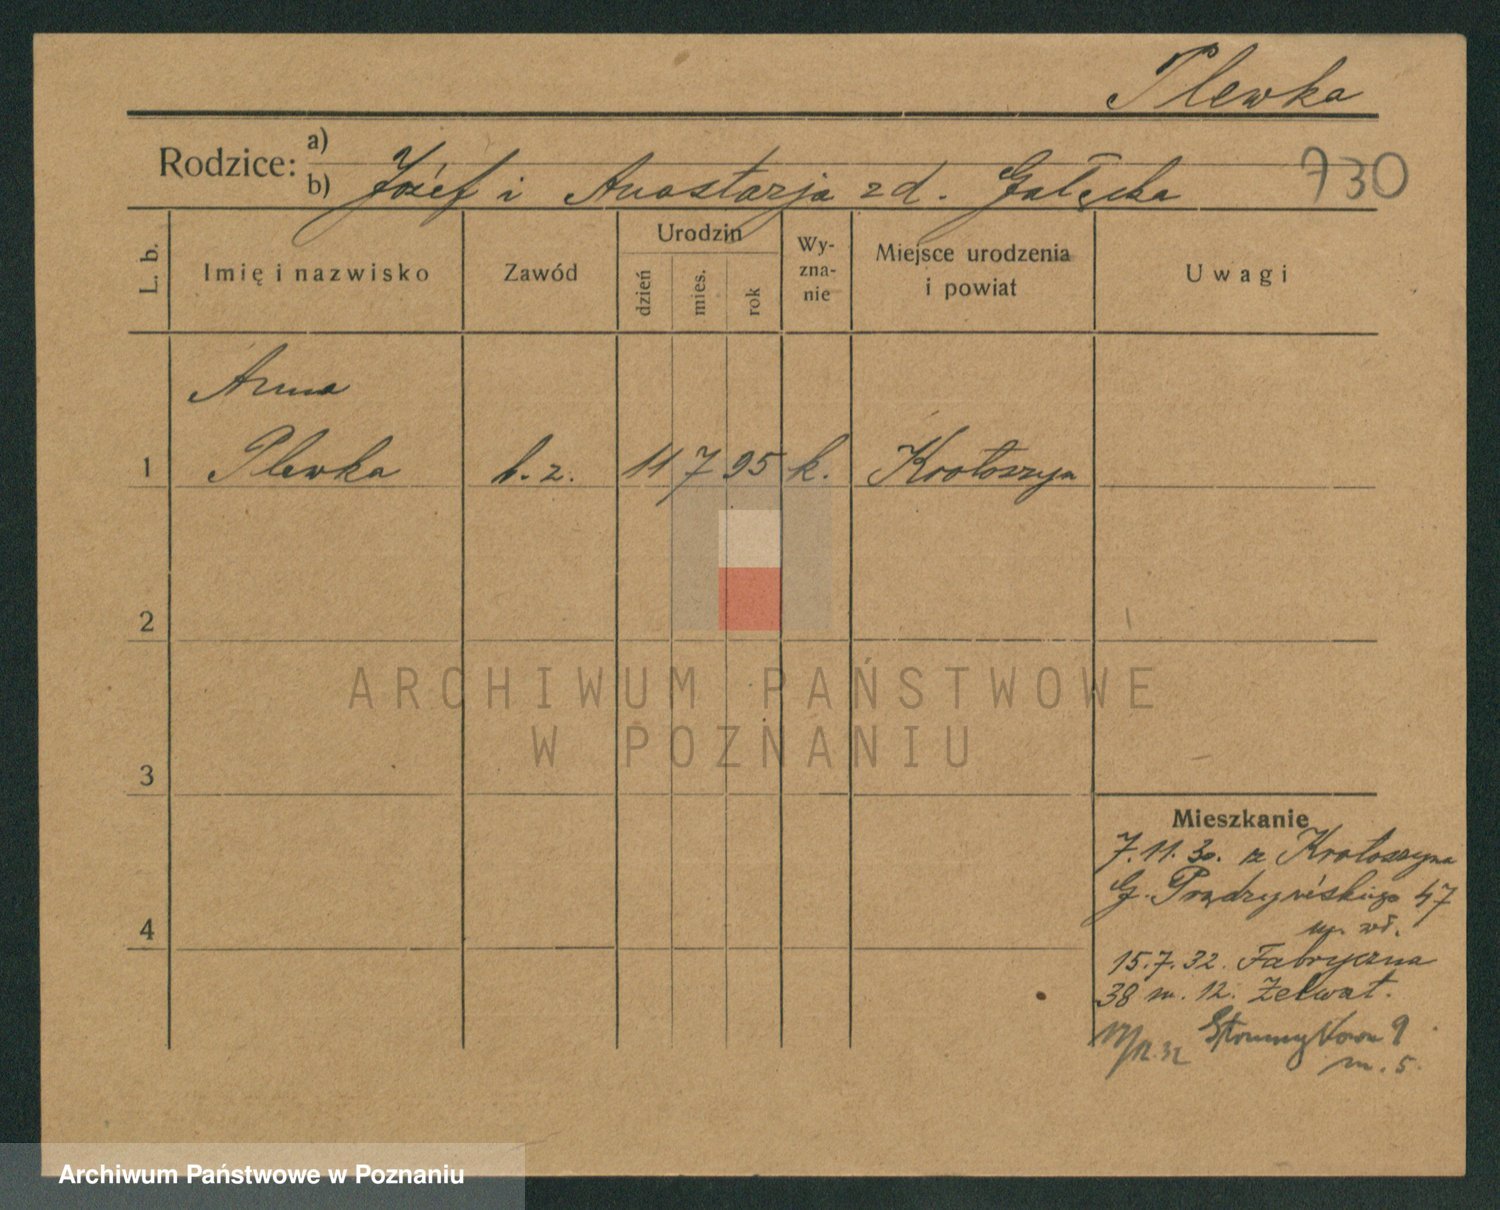 Plewka
Rodzice: a)
b) Józef i Anastazja zd. Gałęcka 730
L. b.
Imię i nazwisko
Zawód
Urodzin
dzień
mies.
rok
Wy-
zna-
nie
Miejsce urodzenia
i powiat
Uwagi
Anna
1 Plewka b. z. 11 7 95 k. Krotoszyn
2
3
4
Mieszkanie
7.11.30. z Krotoszyna
G. Prądzyńskiego 47
u. wł.
15.7.32. Fabryczna
38 m. 12. Żelwat.
/12.32 9
m. 5.
ARCHIWUM PAŃSTWOWE
W POZNANIU
Archiwum Państwowe w Poznaniu